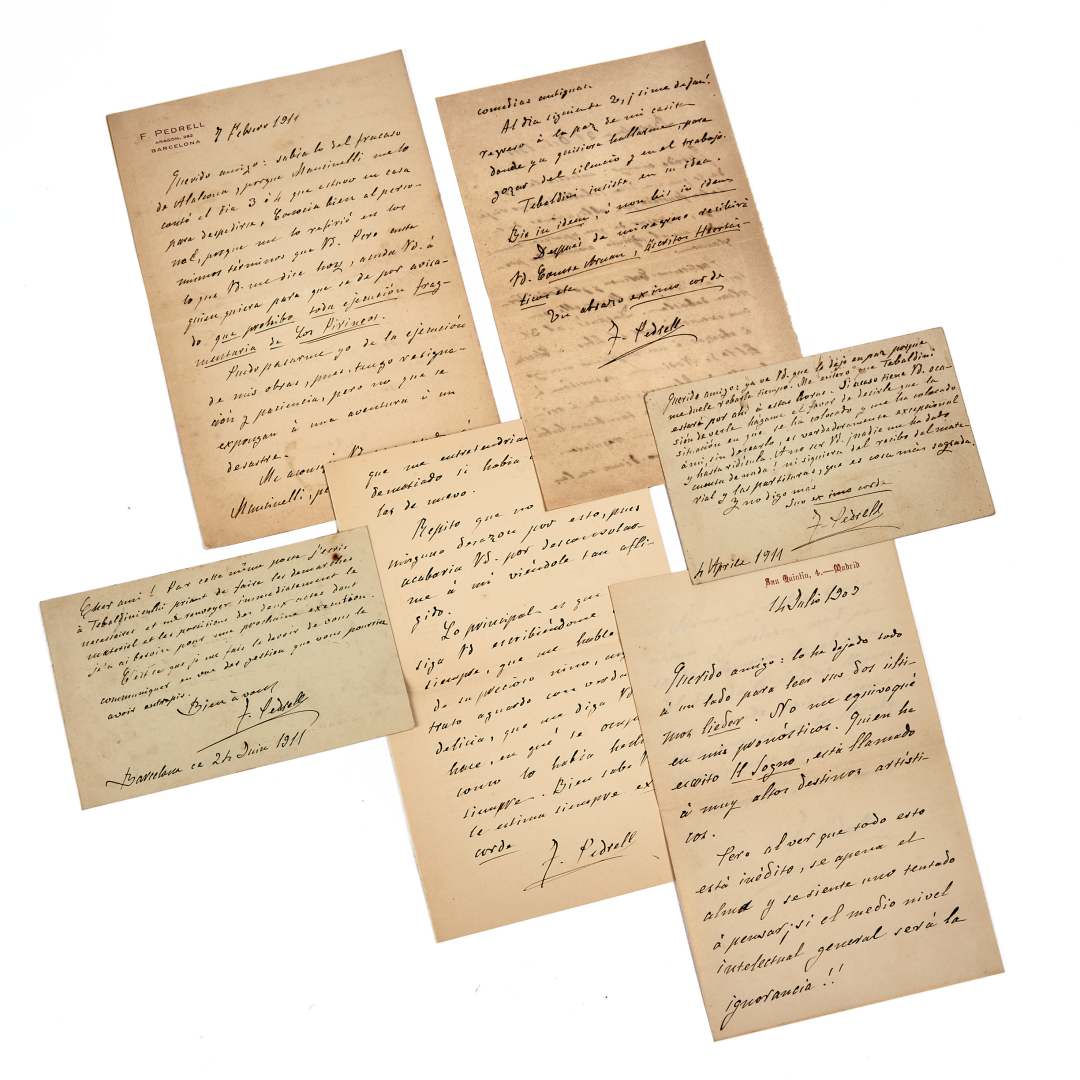 F. PEDRELL
ARAGÓN, 282
BARCELONA
7 Febrero 1911
Querido amigo: sabía lo del fracaso
de Alaleona, porque Mancinelli me lo
contó el día 3 ó 4 que estuvo en casa
para despedirse. Conocía bien al perso-
nal, porque me lo refirió en los
mismos términos que Vd. Pero ante
lo que Vd. me dice hoy, acuda Vd. á
quien quiera para que se dé por avisa-
do que prohibo toda ejecución frag-
mentaria de Los Pirineos.
Pudo pasarme yo de la ejecución
de mis obras, pues tengo resigna-
ción y paciencia, pero no que se
expongan á una aventura ó un
desastre.
Me aconseja
Mancinelli, pe
comedias antiguas.
Al día siguiente 2, ¡si me dejan!
regreso á la paz de mi casita
donde ya quisiera hallarme, para
gozar del silencio y en el trabajo.
Tebaldini insiste en su idea.
Bis in idem, ó non bis in idem
Después de mi regreso recibirá
Vd. Comte Arnau, Escritos Heortás-
ticos etc
Un abrazo ex imo corde
F. Pedrell
Querido amigo: ya ve Vd. que le dejo en paz porque
me duele robarle tiempo. Me entero que Tebaldini
estará por ahí á estas horas. Si acaso tiene Vd. oca-
sión de verle hágame el favor de decirle que la
situación en que se ha colocado y me ha colocado
á mí, sin desearlo, es verdaderamente excepcional
y hasta ridícula. A no ser Vd. ¡nadie me ha dado
cuenta de nada! ni siquiera del recibo del mate-
rial y las partituras, que es cosa más sagrada.
Y no digo más
Suo ex imo corde
F. Pedrell
4 Aprile 1911
que me entretendría
demasiado si había
las de nuevo.
Repito que no
ninguna desazón por esto, pues
acabaría Vd. por desconsolar-
me á mí viéndole tan afli-
gido.
Lo principal es que
siga Vd escribiéndome
siempre, que me hable
de su precioso nino,
trato aguardo con verda
delicia, que me diga Vd
hace, en qué se ocup
como lo había hech
siempre. Bien sabe V
le estima siempre ex
corde
F. Pedrell
Cher ami! Par cette même poste j'écris
à Tebaldini priant de faire les démarches
nécessaires et me renvoyer immédiatement le
matériel et les partitions des deux actes dont
j'en ai besoin pour une prochaine exécution.
C'est ce que je me fais le devoir de vous le
communiquer en vue des gestion que vous pourriez
avoir entrepris.
Bien à vous
F. Pedrell
Barcelona ce 24 Juin 1911
San Quintín, 4.—Madrid
14 Julio 1903
Querido amigo: lo he dejado todo
á un lado para leer sus dos últi-
mos lieder. No me equivoqué
en mis pronósticos. Quien ha
escrito Il Sogno, está llamado
á muy altos destinos artísti-
cos.
Pero al ver que todo esto
está inédito, se apena el
alma y se siente uno tentado
á pensar ¡si el medio nivel
intelectual general será la
ignorancia!!